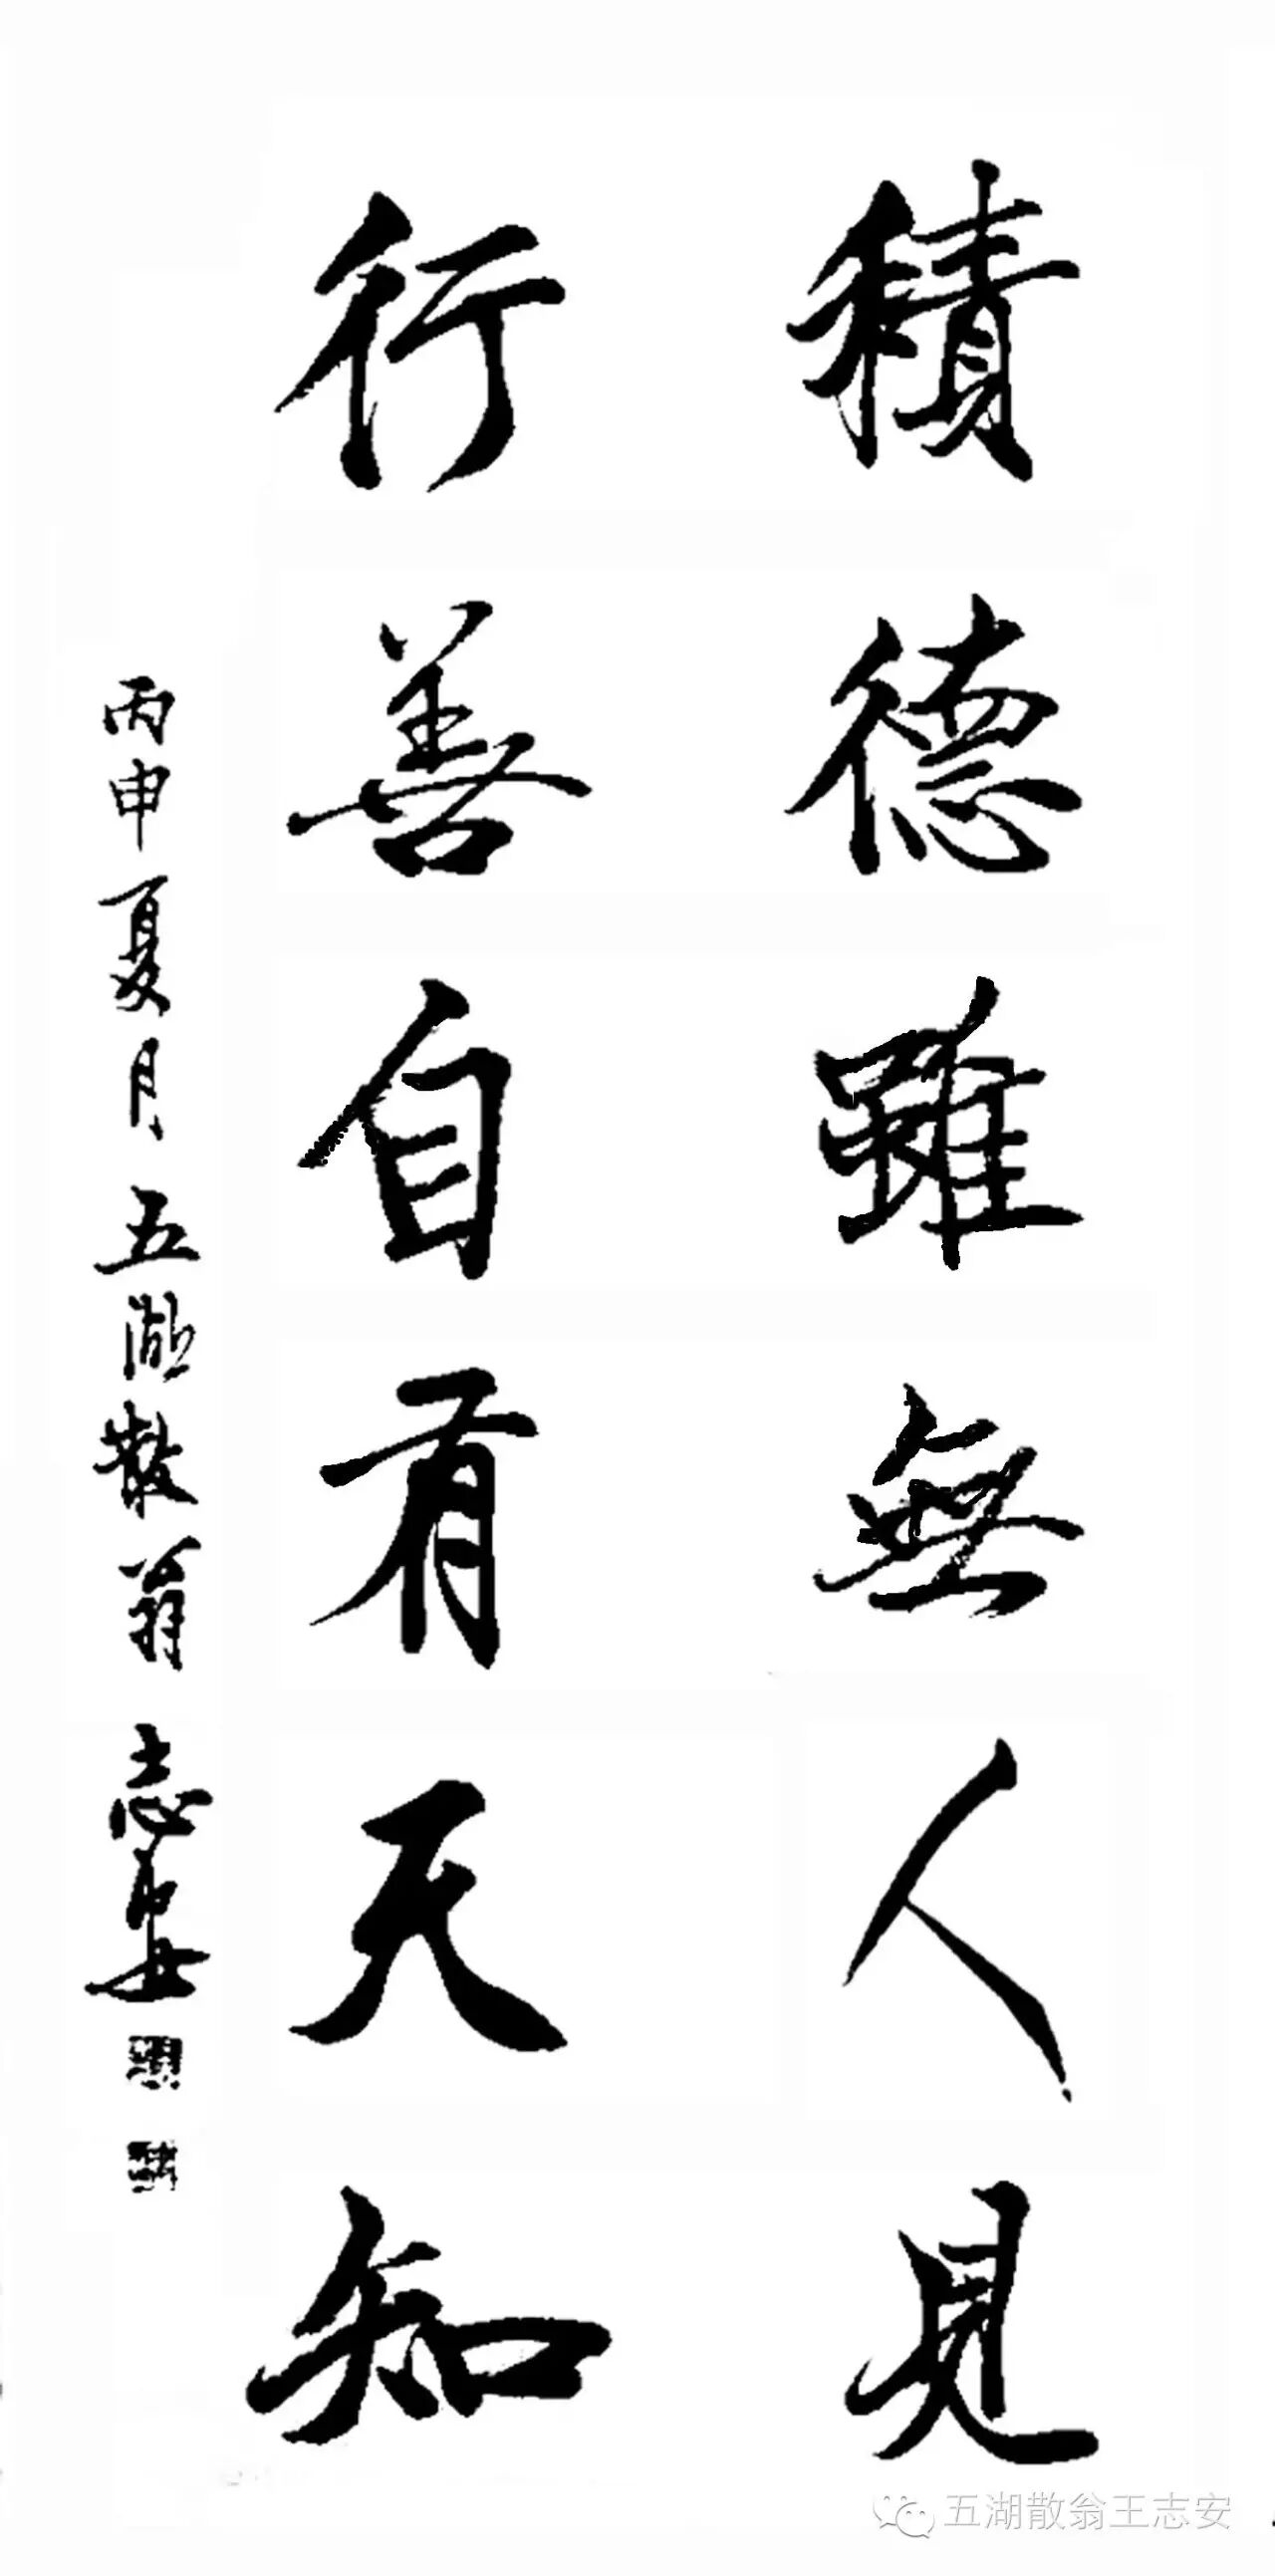 積德雖無人見
行善自有天知
丙申夏月五湖散翁志安
五湖散翁王志安